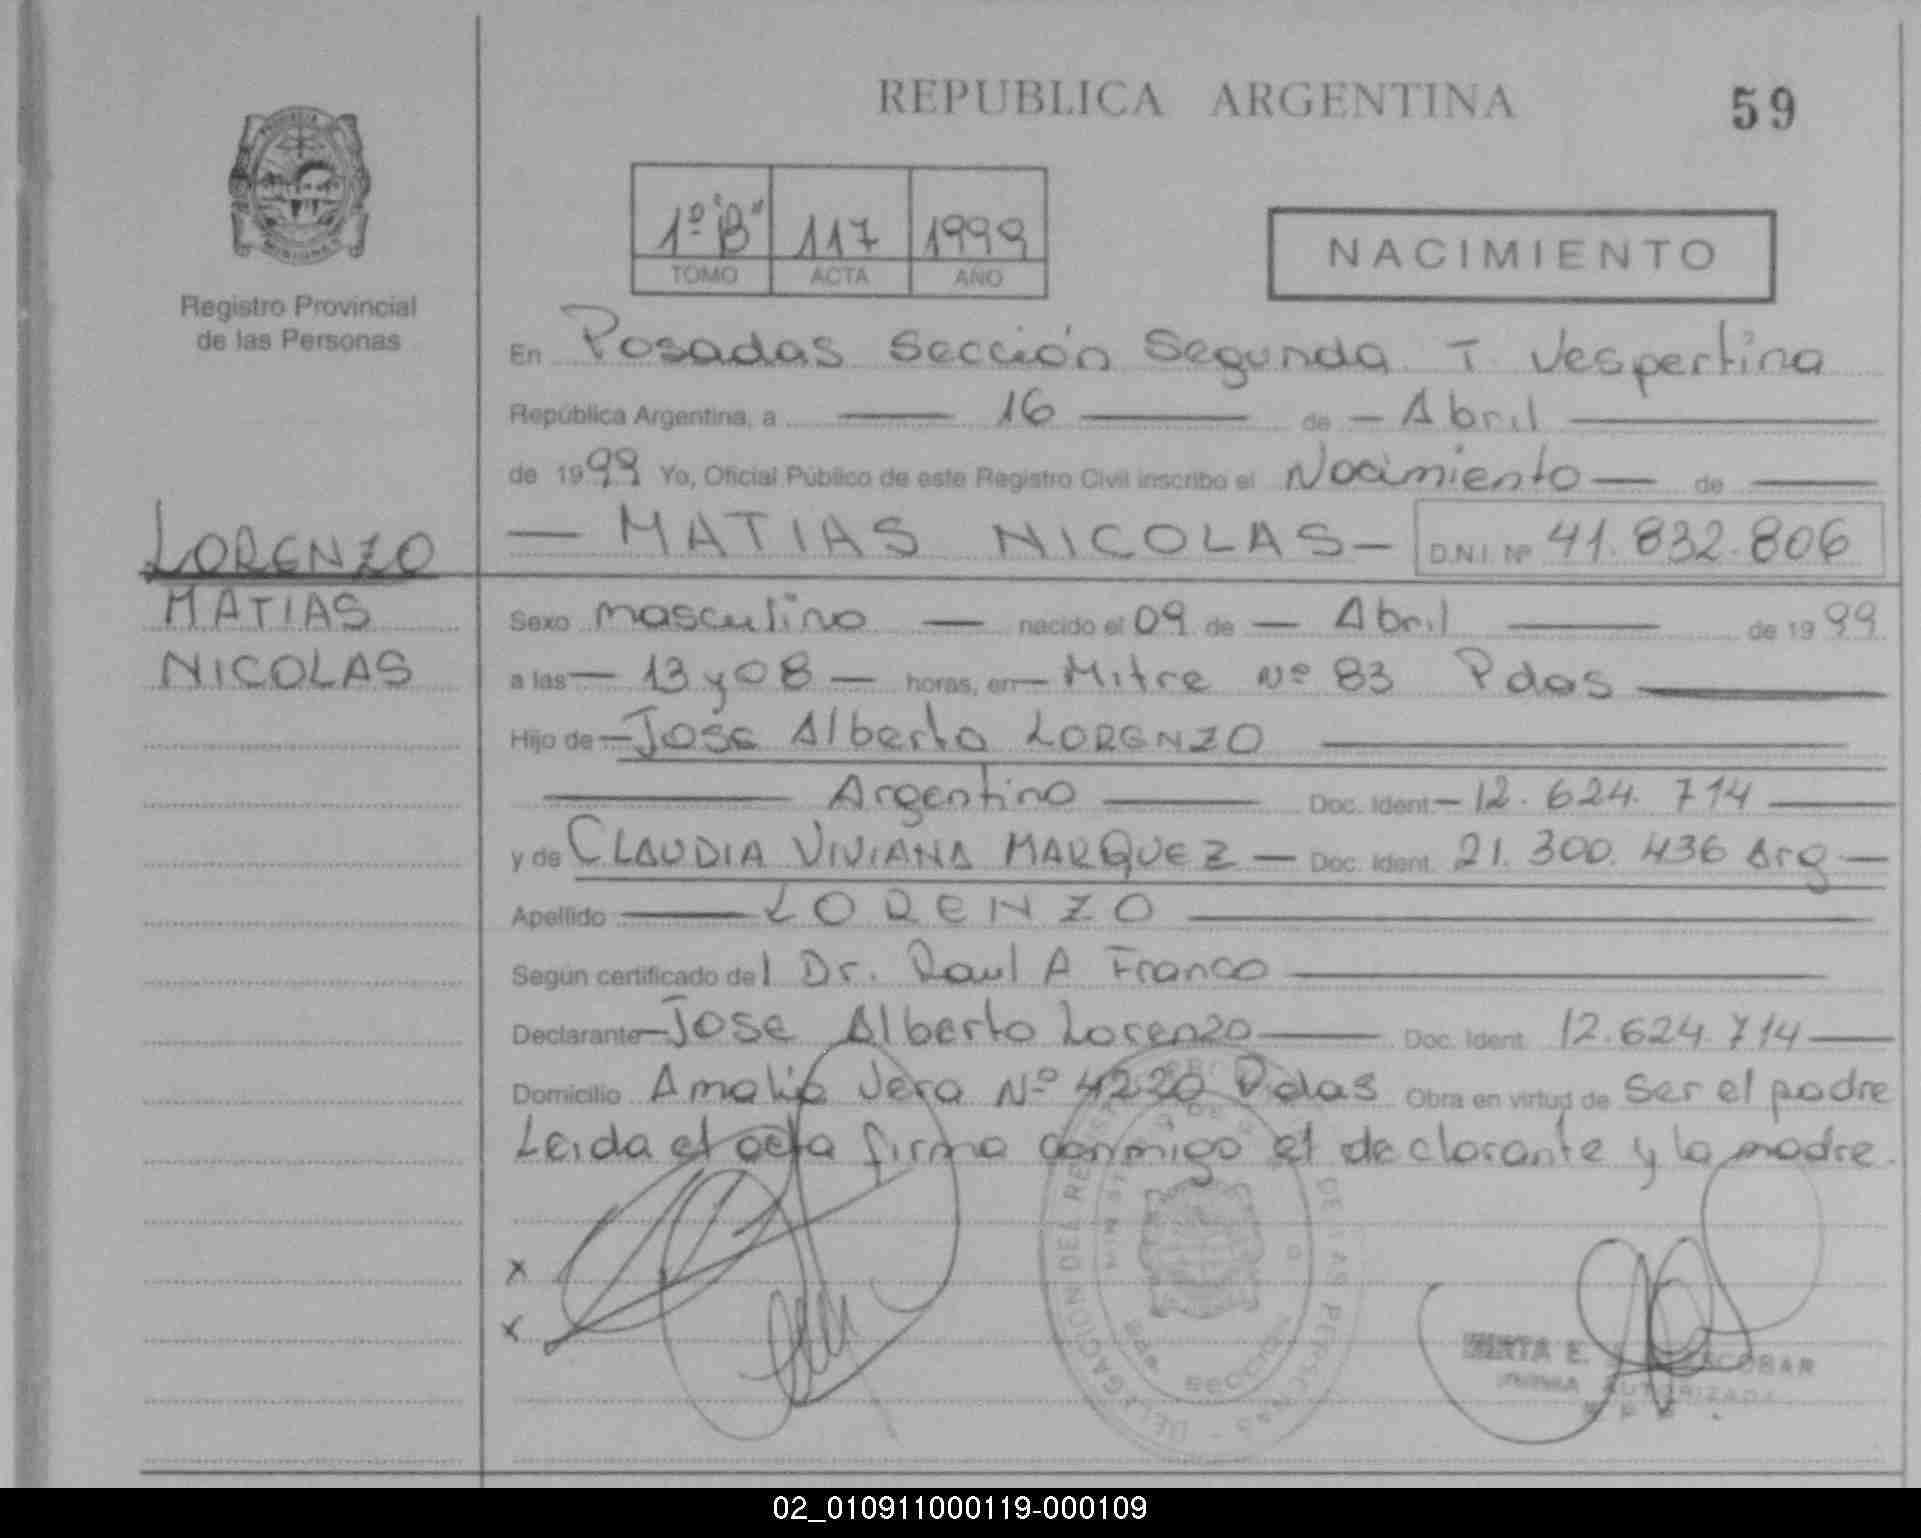 REPUBLICA ARGENTINA
59
1º "B" 117 1999
TOMO ACTA AÑO
NACIMIENTO
Registro Provincial
de las Personas
En Posadas Sección Segunda T. Vespertina
República Argentina, a 16 de Abril
de 1999 Yo, Oficial Público de este Registro Civil inscribo el Nacimiento de
MATIAS NICOLAS D.N.I. Nº 41.832.806
LORENZO
MATIAS
NICOLAS
Sexo masculino nacido el 09 de Abril de 1999
a las 13 y 08 horas, en Mitre Nº 83 Pdas
Hijo de Jose Alberto LORENZO
Argentino Doc. Ident. 12.624.714
y de CLAUDIA VIVIANA MARQUEZ Doc. Ident. 21.300.436 Arg
Apellido LORENZO
Según certificado del Dr. Raul A Franco
Declarante Jose Alberto Lorenzo Doc. Ident. 12.624.714
Domicilio Amalia Vera Nº 4220 Pdas Obra en virtud de ser el padre
Leida el acta firma conmigo el declarante y la madre.
x
x
DELEGACION DEL DE LAS PERSONAS
E. ESCOBAR
FIRMA AUTORIZADA
02_010911000119-000109